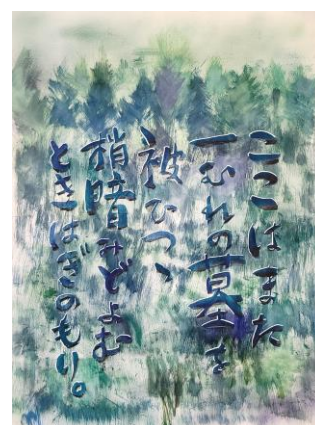 ここはまた
一むれの墓を
被ひつゝ
梢暗みどよむ
ときはぎのもり。